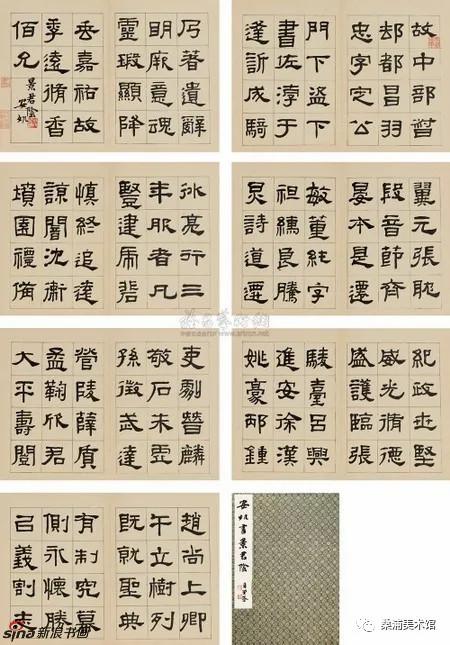 故中部督
邮都昌羽
忠字定公
門下盜下
書佐淳于
逢訢成騎
乃著遺辭
明厥意魂
靈瑕顯降
垂嘉祐故
季遠脩香
佰允
景君陰
翼元張耽
段音節齊
晏本是遷
敏董純字
祖良騰
炅詩道遷
亮行三
年服者凡
豎建虎碑
慎終追遠
諒闇沈衛
墳園禮備
紀政世堅
威光脩德
盛護臨張
陵臺呂興
進安徐漢
姚豪邴鍾
吏劇晉麟
敬石朱亞
孫徵武達
營陵薛質
孟鞠欣君
大平壽登
趙尚上卿
午立樹列
既就聖典
有制究墓
側永懷勝
召義割志
書景君陰
sina新浪书画
桑浦美术馆